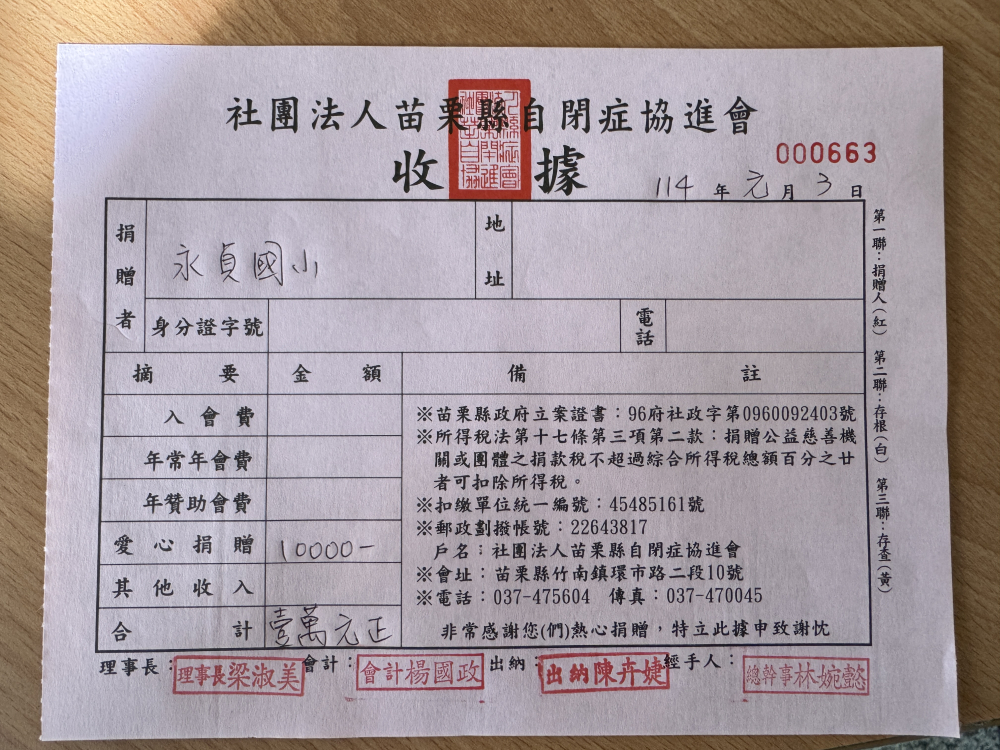 社團法人苗栗縣自閉症協進會
收據
000663
114年元月3日
捐贈者
永貞國小
地址
身分證字號
電話
摘要 金額 備註
入會費
年常年會費
年贊助會費
愛心捐贈 10000-
其他收入
合計 壹萬元正
※苗栗縣政府立案證書：96府社政字第0960092403號
※所得稅法第十七條第三項第二款：捐贈公益慈善機
關或團體之捐款稅不超過綜合所得稅總額百分之廿
者可扣除所得稅。
※扣繳單位統一編號：45485161號
※郵政劃撥帳號：22643817
戶名：社團法人苗栗縣自閉症協進會
※會址：苗栗縣竹南鎮環市路二段10號
※電話：037-475604 傳真：037-470045
非常感謝您(們)熱心捐贈，特立此據申致謝忱
第一聯：捐贈人(紅) 第二聯：存根(白) 第三聯：存查(黃)
理事長：理事長梁淑美 會計：會計楊國政 出納：出納陳卉婕 經手人：總幹事林婉懿